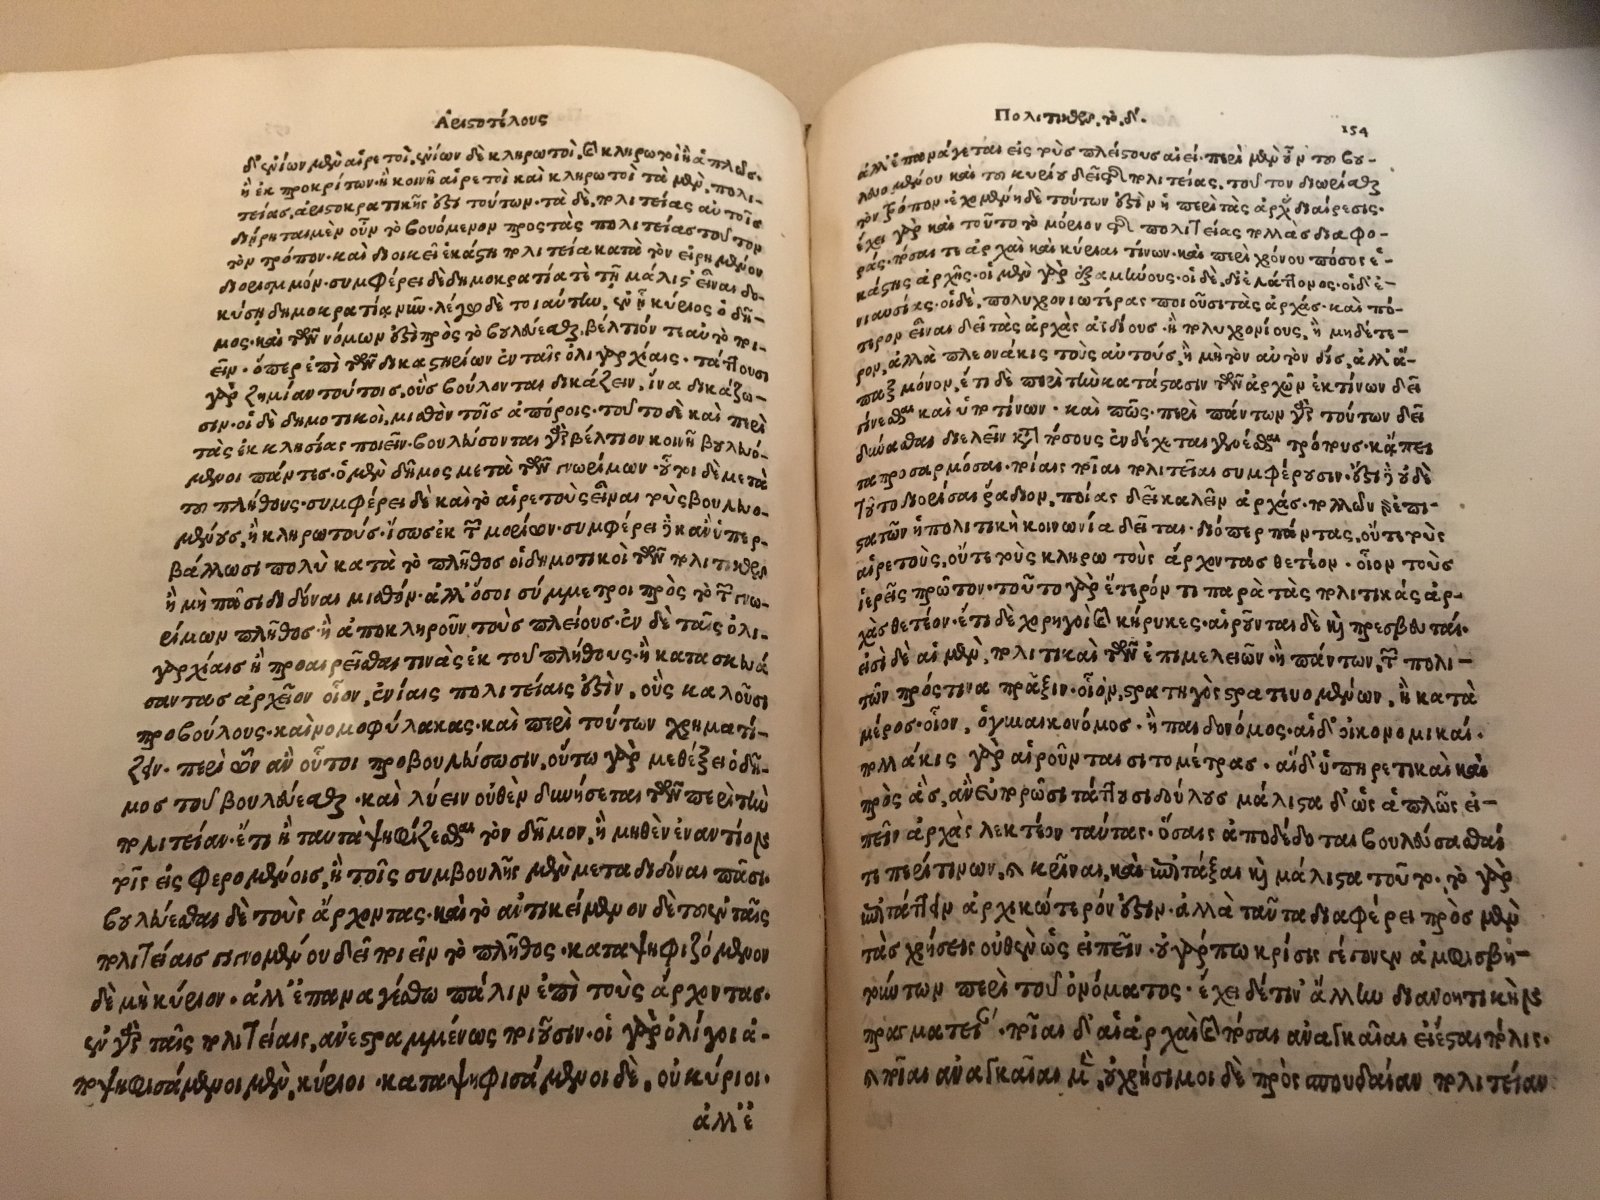 Ἀριστοτέλους
δ' ἐνίων μὲν αἱρετοὶ, ἐνίων δὲ κληρωτοὶ, καὶ κληρωτοὶ ἢ ἁπλῶς.
ἢ ἐκ προκρίτων· ἢ κοινῇ αἱρετοὶ καὶ κληρωτοὶ τὰ μὲν, πολι-
τείας, ἀριστοκρατικῆς ἐστι τούτων· τὰ δὲ, πολιτείας αὐτοῖς
διῄρηται μὲν οὖν τὸ βουόμενον πρὸς τὰς πολιτείας τοῦτον
τὸν τρόπον· καὶ διοικεῖ ἑκάστη πολιτεία κατὰ τὸν εἰρημένον
διορισμόν· συμφέρει δὲ δημοκρατία τὲ τῇ μάλιστ' εἶναι δο-
κούσῃ δημοκρατίᾳ νῦν· λέγω δὲ τοιαύτην, ἐν ᾗ κύριος ὁ δῆ-
μος· καὶ τῶν νόμων ἐστὶ πρὸς τὸ βουλεύεσθαι, βέλτιόν τε αὐτὸ ποι-
εῖν· ὅπερ ἐπὶ τῶν δικαστηρίων ἐν ταῖς ὀλιγαρχίαις· τάττουσι
γὰρ ζημίαν τούτοις, οὓς βούλονται δικάζειν, ἵνα δικάζω-
σιν· οἱ δὲ δημοτικοὶ, μισθὸν τοῖς ἀπόροις· τοῦτο δὲ καὶ περὶ
τὰς ἐκκλησίας ποιεῖν· βουλεύσονται γὰρ βέλτιον κοινῇ βουλευό-
μενοι πάντες· ὁ μὲν δῆμος μετὰ τῶν γνωρίμων· οὗτοι δὲ μετὰ
τοῦ πλήθους· συμφέρει δὲ καὶ τὸ αἱρετοὺς εἶναι τοὺς βουλευο-
μένους, ἢ κληρωτούς· ἴσως ἐκ τῶν μορίων· συμφέρει ἢ κἂν ὑπερ-
βάλλωσι πολὺ κατὰ τὸ πλῆθος οἱ δημοτικοὶ τῶν πολιτικῶν
ἢ μὴ πᾶσι διδόναι μισθόν· ἀλλ' ὅσοι σύμμετροι πρὸς τὸ τῶν γνω-
ρίμων πλῆθος· ἢ ἀποκληροῦν τοὺς πλείους· ἐν δὲ ταῖς ὀλι-
γαρχίαις ἢ προαιρεῖσθαι τινὰς ἐκ τοῦ πλήθους· ἢ κατασκευά
σαντας ἀρχεῖον οἷον, ἐνίαις πολιτείαις ἐστὶν, οὓς καλοῦσι
προβούλους· καὶ νομοφύλακας· καὶ περὶ τούτων χρηματί-
ζειν· περὶ ὧν ἂν οὗτοι προβουλεύσωσιν, οὕτω γὰρ μεθέξει ὁ δῆ-
μος τοῦ βουλεύεσθαι· καὶ λύειν οὐθὲν δυνήσεται τῶν περὶ τὴν
πολιτείαν· ἔτι ἢ ταυτὰ ψηφίζεσθαι τὸν δῆμον, ἢ μηθὲν ἐναντίον
τοῖς εἰσφερομένοις, ἢ τοῖς συμβουλῆς μὲν μεταδιδόναι πᾶσι·
βουλεύεσθαι δὲ τοὺς ἄρχοντας· καὶ τὸ ἀντικείμενον δὲ τοῦ ἐν ταῖς
πολιτείαις γινομένου δεῖ ποιεῖν τὸ πλῆθος· καταψηφιζόμενον
δὲ μὴ κύριον· ἀλλ' ἐπαναγέσθω πάλιν ἐπὶ τοὺς ἄρχοντας·
ἐν γὰρ ταῖς πολιτείαις, ἀνεστραμμένως ποιοῦσιν· οἱ γὰρ ὀλίγοι ἀ-
ποψηφισάμενοι μὲν, κύριοι· καταψηφισάμενοι δὲ, οὐ κύριοι·
ἀλλ' ἐ
Πολιτικῶν, τὸ, δ'.
154
ἀλλ' ἐπανάγεται εἰς τοὺς πλείστους αἰεί· περὶ μὲν οὖν τοῦ βου-
λευομένου καὶ τοῦ κυρίου δεῖ τῆς πολιτείας, τοῦτον διωρίσθαι
τὸν τρόπον· ἐχομένη δὲ τούτων ἐστὶν ἡ περὶ τὰς ἀρχὰς διαίρεσις·
ἔχει γὰρ καὶ τοῦτο τὸ μόριον τῆς πολιτείας πολλὰς διαφο-
ράς· πόσαι τε ἀρχαὶ καὶ κύριαι τίνων· καὶ περὶ χρόνου πόσος ἑ-
κάστης ἀρχῆς· οἱ μὲν γὰρ ἑξαμήνους· οἱ δὲ, δι' ἐλάττονος· οἱ δ' ἐ-
νιαυσίας· οἱ δὲ, πολυχρονιωτέρας ποιοῦσι τὰς ἀρχάς· καὶ πό-
τερον εἶναι δεῖ τὰς ἀρχὰς ἀϊδίους· ἢ πολυχρονίους, ἢ μηδέτε-
ρον, ἀλλὰ πλεονάκις τοὺς αὐτούς, ἢ μὴ τὸν αὐτὸν δίς, ἀλλ' ἅ-
παξ μόνον, ἔτι δὲ περὶ τὴν κατάστασιν τῶν ἀρχῶν ἐκ τίνων δεῖ
γίνεσθαι καὶ ὑπὸ τίνων· καὶ πῶς· περὶ πάντων γὰρ τούτων δεῖ
δύνασθαι διελεῖν κατὰ πόσους ἐνδέχεται γενέσθαι τρόπους· κἄπει
τα προσαρμόσαι· ποίαις ποῖαι πολιτεῖαι συμφέρουσιν· ἐστὶ ἢ οὐδὲ
τοῦτο διορίσαι ῥᾴδιον, ποίας δεῖ καλεῖν ἀρχάς· πολλῶν γὰρ ἐπι-
στατῶν ἡ πολιτικὴ κοινωνία δεῖται· διόπερ πάντας, οὔτε τοὺς
αἱρετοὺς, οὔτε τοὺς κληρωτοὺς ἄρχοντας θετέον· οἷον τοὺς
ἱερεῖς πρῶτον· τοῦτο γὰρ ἕτερόν τι παρὰ τὰς πολιτικάς ἀρ-
χὰς θετέον· ἔτι δὲ χορηγοὶ καὶ κήρυκες· αἱροῦνται δὲ καὶ πρεσβευταί·
εἰσὶ δὲ αἱ μὲν, πολιτικαὶ τῶν ἐπιμελειῶν· ἢ πάντων, τῶν πολι-
τῶν πρός τινα πρᾶξιν· οἷον, στρατηγὸς στρατευομένων, ἢ κατὰ
μέρος· οἷον, ὁ γυναικονόμος· ἢ παιδονόμος· αἱ δ' οἰκονομικαί·
πολλάκις γὰρ αἱροῦνται σιτομέτρας· αἱ δ' ὑπηρετικαὶ καὶ
πρὸς ἃς, ἂν εὐπορῶσι τάττουσι δούλους μάλιστα δ' ὡς ἁπλῶς εἰ-
πεῖν ἀρχὰς λεκτέον ταύτας· ὅσαις ἀποδέδοται βουλεύσασθαί
τι περί τινων, καὶ κρῖναι, καὶ ἐπιτάξαι καὶ μάλιστα τοῦτο· τὸ γὰρ
ἐπιτάττειν ἀρχικώτερόν ἐστιν· ἀλλὰ ταῦτα διαφέρει πρὸς μὲν
τὰς χρήσεις οὐθὲν ὡς εἰπεῖν· οὐ γάρ πω κρίσις γέγονεν ἀμφισβη-
τούντων περὶ τοῦ ὀνόματος· ἔχει δέ τιν' ἄλλην διανοητικὴν
πραγματείαν· ποῖαι δ' αἱ ἀρχαὶ καὶ πόσαι ἀναγκαῖαι εἰ ἔσται πόλις·
καὶ ποῖαι ἀναγκαῖαι μὲν, οὐ χρήσιμοι δὲ πρὸς σπουδαίαν πολιτείαν